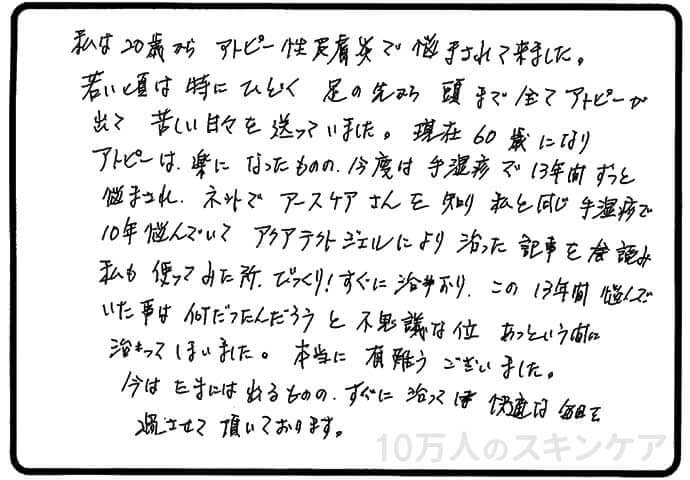 私は20歳から アトピー性皮膚炎で悩まされて来ました。
若い頃は特にひどく 足の先から 頭まで全てアトピーが
出て 苦しい日々を送っていました。現在60歳になり
アトピーは、楽になったものの、今度は手湿疹で13年間ずっと
悩まされ、ネットで アースケアさんを知り 私と同じ手湿疹で
10年悩んでいて アクアテクトジェルにより治った記事を 読み
私も使ってみた所、びっくり!すぐに治まり、この13年間悩んで
いた事は何だったんだろうと不思議な位 あっという間に
治まってしまいました。本当に有難うございました。
今はたまには出るものの、すぐに治って 快適な毎日を
過させて頂いております。
10万人のスキンケア